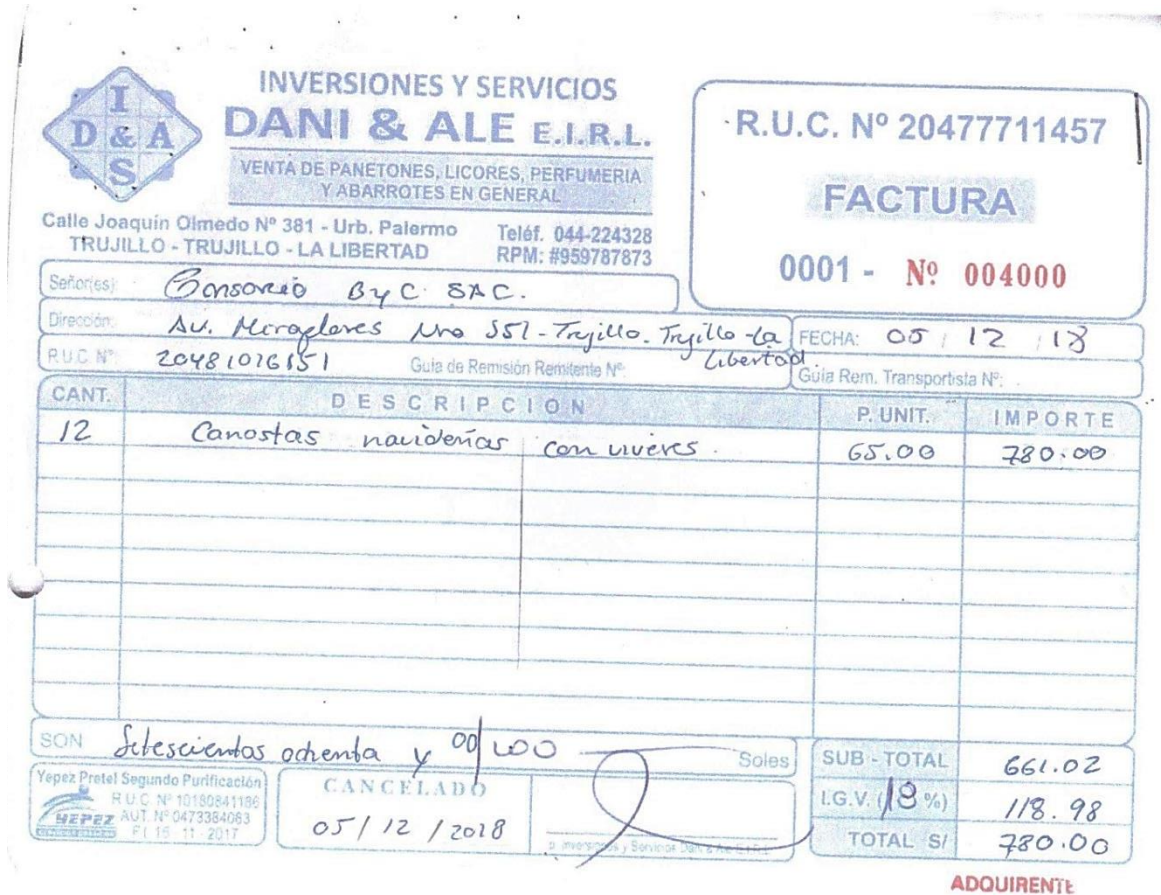 I
D & A
S
INVERSIONES Y SERVICIOS
DANI & ALE E.I.R.L.
VENTA DE PANETONES, LICORES, PERFUMERIA
Y ABARROTES EN GENERAL
Calle Joaquín Olmedo Nº 381 - Urb. Palermo
TRUJILLO - TRUJILLO - LA LIBERTAD
Teléf. 044-224328
RPM: #959787873
R.U.C. Nº 20477711457
FACTURA
0001 - Nº 004000
Señor(es): Consorcio ByC SAC.
Dirección: Av. Miraflores Nro 551 - Trujillo. Trujillo - La Libertad.
FECHA: 05 / 12 / 18
R.U.C. Nº: 20481016151 Guía de Remisión Remitente Nº: Guía Rem. Transportista Nº:
CANT. DESCRIPCION P. UNIT. IMPORTE
12 Canastas navideñas con viveres. 65.00 780.00
SON Setescientos ochenta y 00/100 Soles
SUB - TOTAL 661.02
I.G.V. (18 %) 118.98
TOTAL S/ 780.00
Yepez Pretel Segundo Purificación
R.U.C. Nº 10180841186
YEPEZ AUT. Nº 0473384083
F.I. 15 - 11 - 2017
CANCELADO
05 / 12 / 2018
p. Inversiones y Servicios Dani & Ale E.I.R.L.
ADQUIRENTE